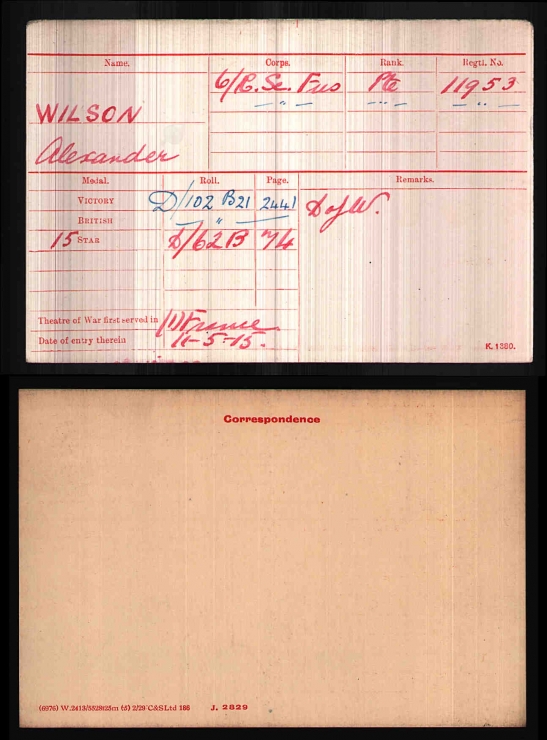 Name. Corps. Rank. Regtl. No.
6/R. Sc. Fus Pte 11953
— " — — " — — " —
WILSON
Alexander
Medal. Roll. Page. Remarks.
VICTORY D/102 B21 2441 D of W.
BRITISH — " —
15 STAR D/62B 74
Theatre of War first served in (1) France
Date of entry therein 11-5-15.
K. 1380.
Correspondence
(6976) W.2413/5528t25m (5) 2/29 C&SLtd 188 J. 2829